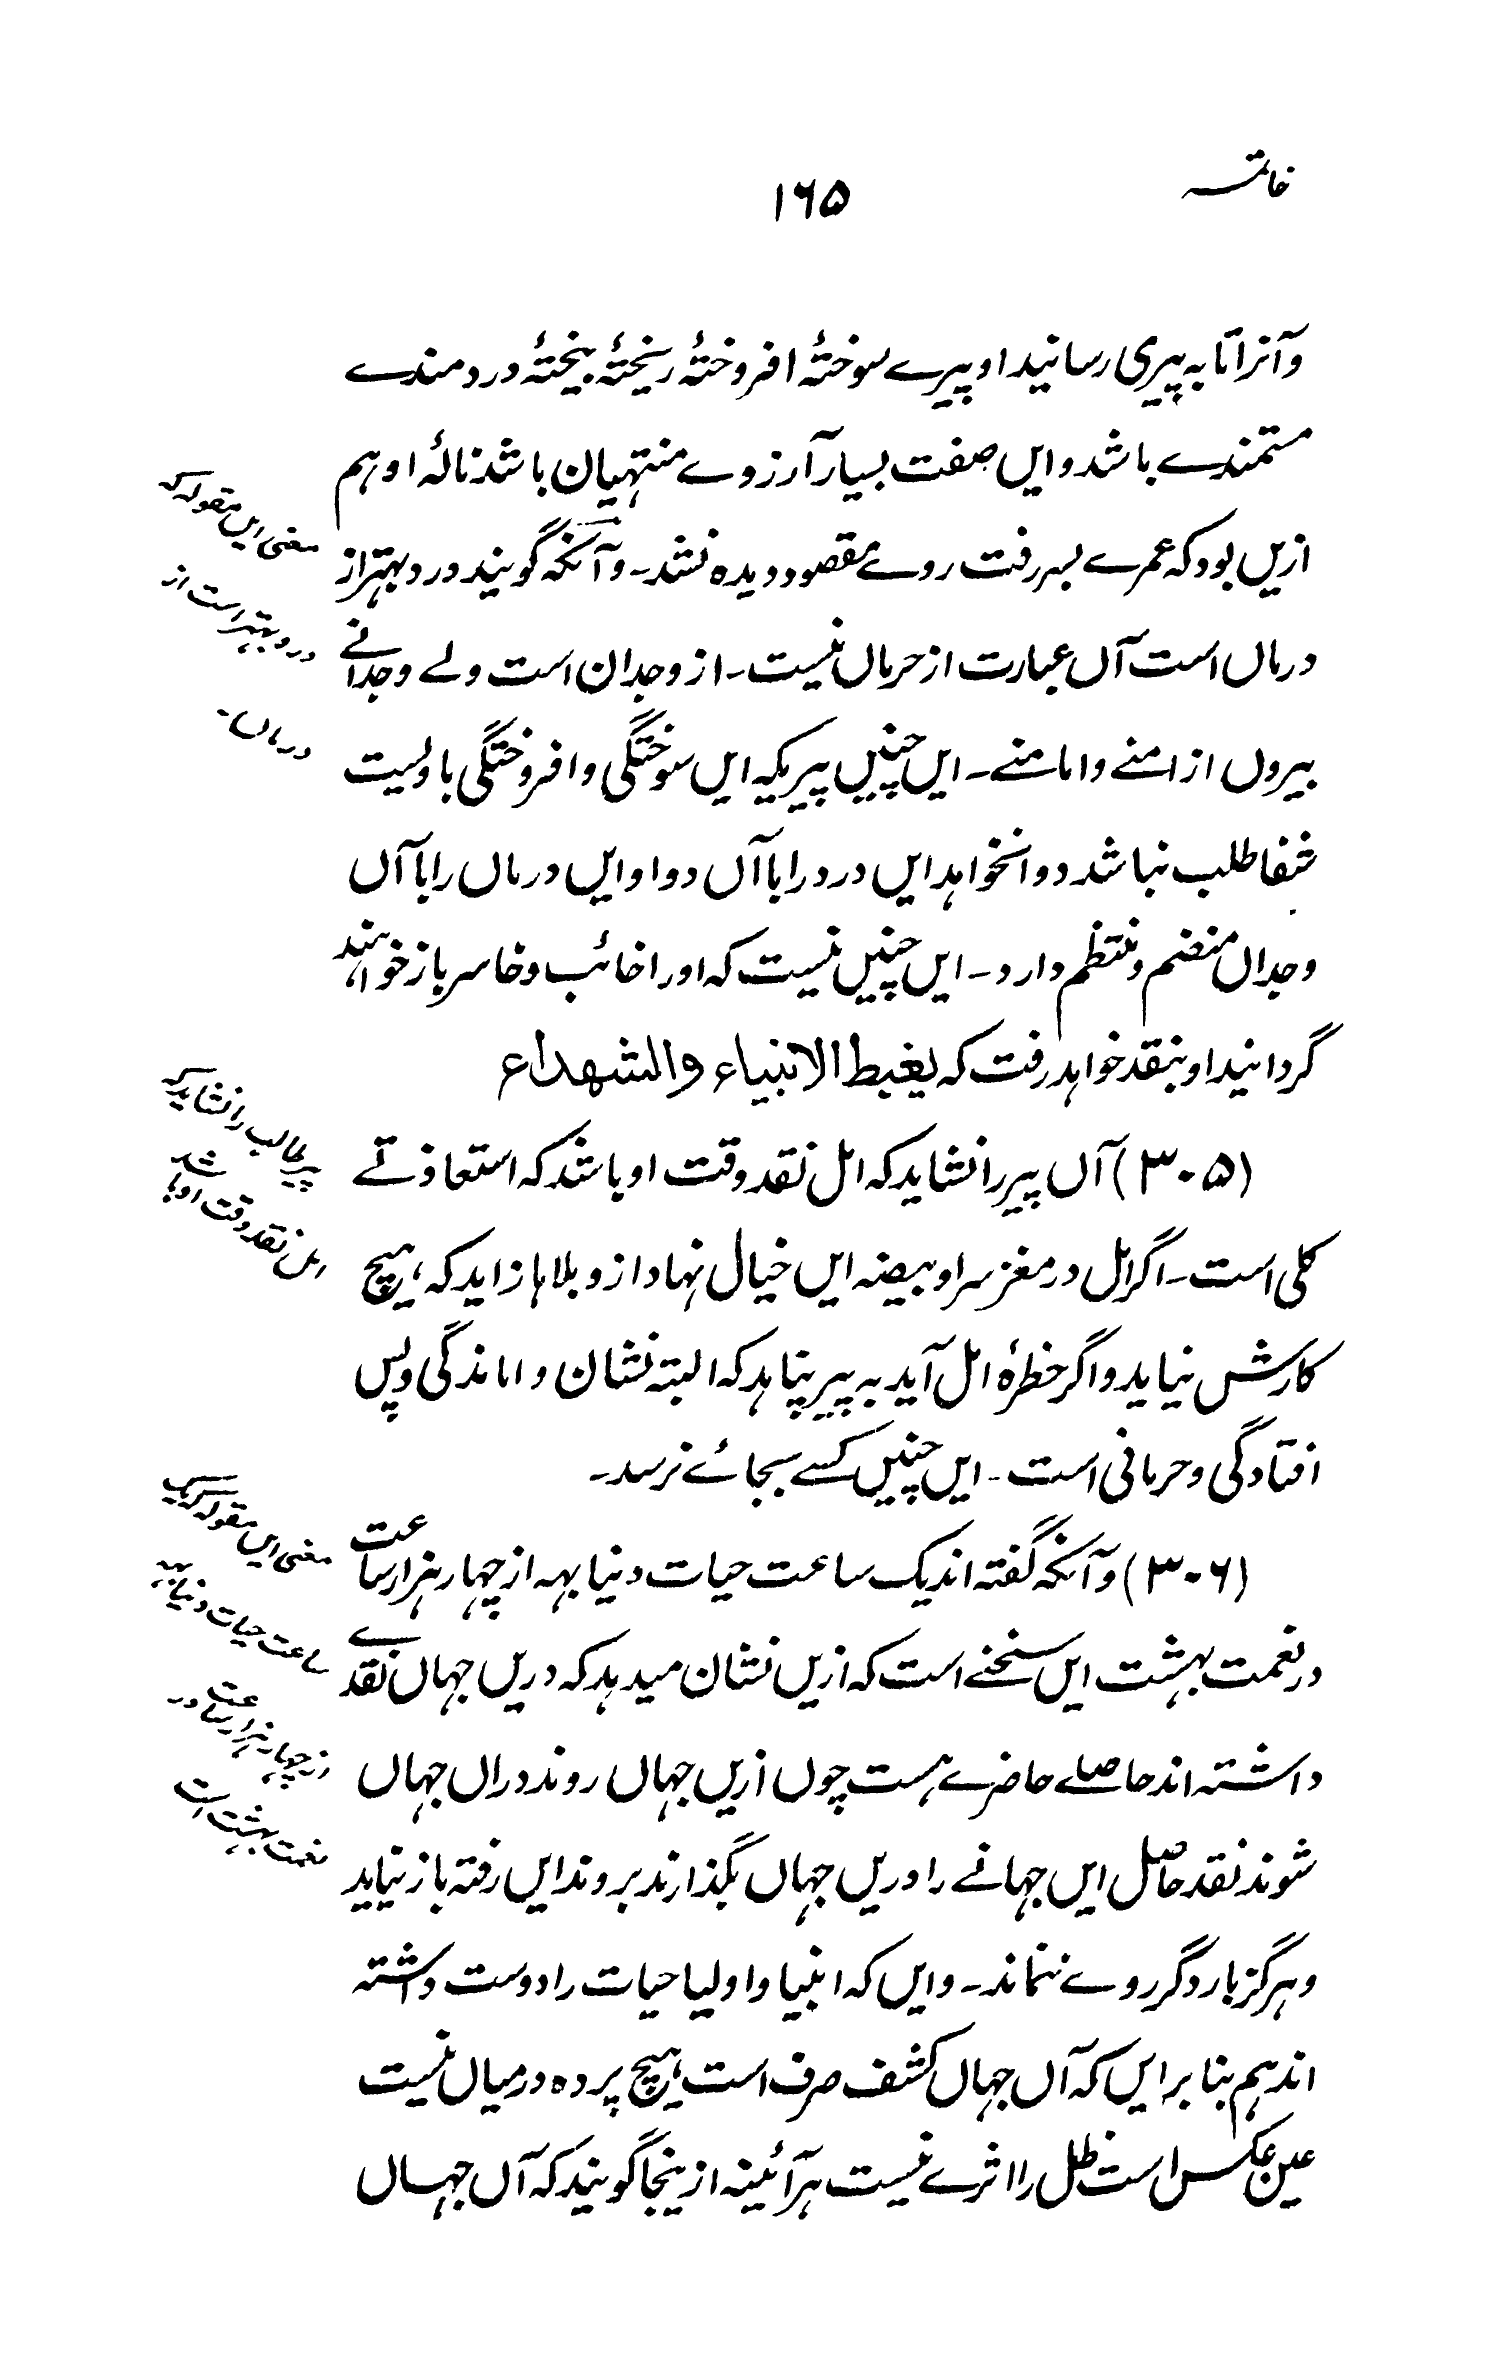 خاتمه
۱۶۵
وآنرا تا به پیری رسانید او پیرے سوختۂ افروختۂ ریختۂ بیختۂ دردمندے
مستمندے باشد و ایں صفت بسیار آرزوے منتہیان باشد نالۂ او ہم
ازیں بود کہ عمرے بسر رفت روے مقصود دیدہ نشد۔ و آنکہ گویند درد بہتر از
درماں است آں عبارت از حرماں نیست۔ از وجدان است ولے وجدانے
بیروں از امنے و امامنے۔ ایں چنیں پیریکہ ایں سوختگی و افروختگی باویست
شفا طلب نباشد دوا نخواہد ایں درد را با آں دوا و ایں درماں را با آں
وجداں منضم و منتظم دارد۔ ایں چنیں نیست کہ او را خائب و خاسر باز خواہند
گردانید او بنقد خواہد رفت کہ یغبط الانبیاء والشهداء
(۳۰۵) آں پیر را نشاید کہ امل نقد وقت او باشد کہ استعاذتے
کلی است۔ اگر امل در مغز سر او بیضہ ایں خیال نہاد ازو بلاہا زاید کہ ہیچ
کارش نیاید و اگر خطرۂ امل آید بہ پیر پناہد کہ البتہ نشان واماندگی و پس
افتادگی و حرمانی است۔ ایں چنیں کسے بجائے نرسد۔
(۳۰۶) و آنکہ گفتہ اند یک ساعت حیات دنیا بہہ از چہار ہزار ساعت
در نعمت بہشت ایں سخنے است کہ ازیں نشان میدہد کہ دریں جہاں نقدے
داشتہ اند حاصلے حاضرے ہست چوں ازیں جہاں روند دراں جہاں
شوند نقد حاصل ایں جہانے را دریں جہاں بگذارند بروند ایں رفتہ باز نیاید
و ہرگز بار دگر روے ننماند۔ و ایں کہ انبیا و اولیا حیات را دوست داشتہ
اند ہم بنا بر ایں کہ آں جہاں کشف صرف است ہیچ پردہ درمیاں نیست
عین عکس است ظل را اثرے نیست ہر آئینہ ازینجا گویند کہ آں جہاں
معنی ایں مقولہ کہ
درد بہتر است از
درماں۔
پیر طالب را نشاید کہ
امل نقد وقت او باشد
معنی ایں مقولہ کہ یک
ساعت حیات دنیا بہہ
از چہار ہزار ساعت در
نعمت بہشت است